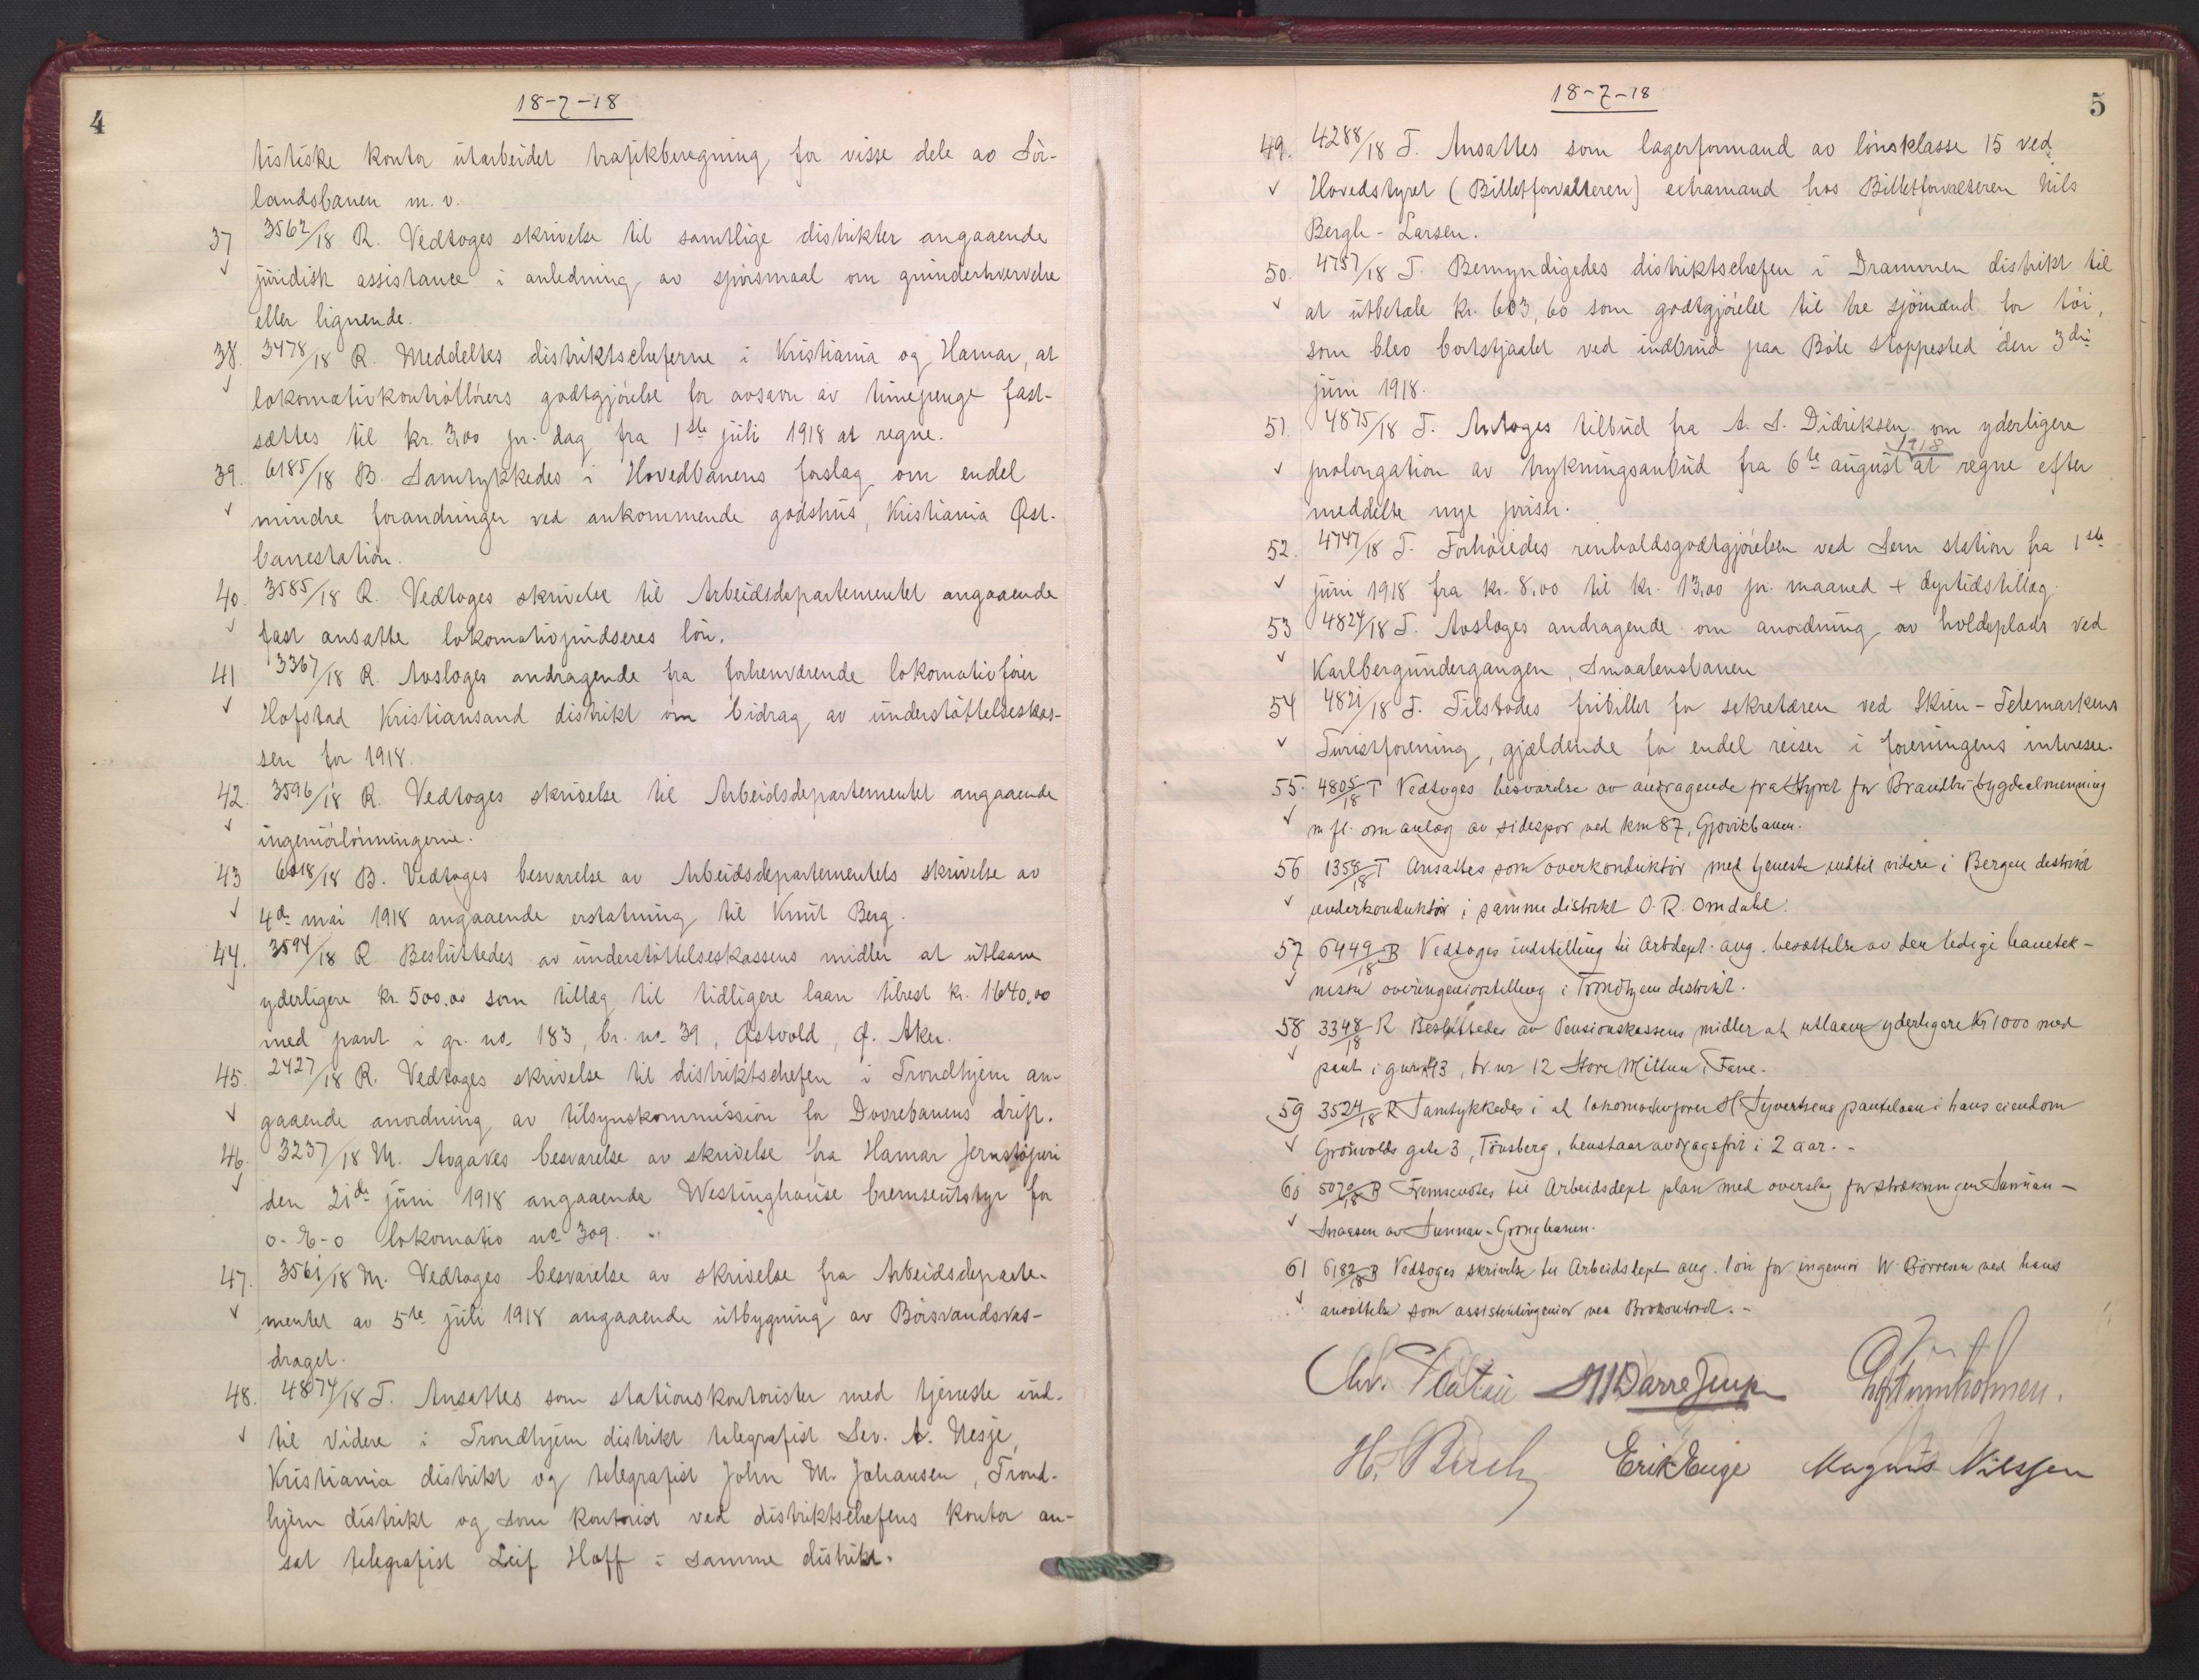 4
18-7-18
tistiske kontor utarbeidet trafikberegning for visse dele av Sör-
landsbanen m.v.
37 3562/18 R. Vedtoges skrivelse til samtlige distrikter angaaende
✓ juridisk assistance i anledning av spörsmaal om grunderhvervelse
eller lignende.
38. 3478/18 R. Meddeltes distriktscheferne i Kristiania og Hamar, at
✓ lokomotivkontrollörers godtgjörelse for avsavn av timepenge fast-
sættes til kr. 3,00 pr. dag fra 1ste juli 1918 at regne.
39. 6185/18 B. Samtykkedes i Hovedbanens forslag om endel
✓ mindre forandringer ved ankommende godshus, Kristiania Øst-
banestation.
40. 3585/18 R. Vedtoges skrivelse til Arbeidsdepartementet angaaende
✓ fast ansatte lokomotivpudseres lön.
41 3367/18 R. Avsloges andragende fra forhenværende lokomotivförer
✓ Hofstad Kristiansand distrikt om bidrag av understöttelseskas-
sen for 1918.
42. 3596/18 R. Vedtoges skrivelse til Arbeidsdepartementet angaaende
✓ ingeniörlönningerne.
43 6018/18 B. Vedtoges besvarelse av Arbeidsdepartementets skrivelse av
✓ 4de mai 1918 angaaende erstatning til Knut Berg.
44. 3594/18 R Besluttedes av understöttelseskassens midler at utlaane
✓ yderligere kr. 500,00 som tillæg til tidligere laan tilrest kr. 1640,00
med pant i gr. no. 183, br. no. 39, Østvold, Ø. Aker.
45. 2427/18 R. Vedtoges skrivelse til distriktschefen i Trondhjem an-
✓ gaaende anordning av tilsynskommission for Dovrebanens drift.
46. 3237/18 M. Avgaves besvarelse av skrivelse fra Hamar Jernstöperi
✓ den 21de juni 1918 angaaende Westinghouse bremseutstyr for
0-6-0 lokomotiv no. 309.
47. 3561/18 M. Vedtoges besvarelse av skrivelse fra Arbeidsdeparte-
✓ mentet av 5te juli 1918 angaaende utbygning av Börsvandsvas-
draget.
48. 4874/18 T. Ansattes som stationskontorister med tjeneste ind-
✓ til videre i Trondhjem distrikt telegrafist Sev. A. Nesje,
Kristiania distrikt og telegrafist John M. Johansen, Trond-
hjem distrikt og som kontorist ved distriktschefens kontor an-
sat telegrafist Leif Hoff i samme distrikt.
5
18-7-18
49. 4288/18 T. Ansattes som lagerformand av lönsklasse 15 ved
✓ Hovedstyret (Billetforvalteren) extramand hos Billetforvalteren Nils
Bergh-Larsen.
50. 4757/18 T. Bemyndigedes distriktschefen i Drammen distrikt til
✓ at utbetale kr. 603,60 som godtgjörelse til tre sjömænd for töi,
som blev bortstjaalet ved indbrud paa Böle stoppested den 3die
juni 1918.
51. 4875/18 T. Antoges tilbud fra A. S. Didriksen om yderligere
1918
✓ prolongation av trykningsanbud fra 6te august at regne efter
meddelte nye priser.
52. 4747/18 T. Forhöiedes renholdsgodtgjörelsen ved Sem station fra 1ste
✓ juni 1918 fra kr. 8,00 til kr. 13,00 pr. maaned + dyrtidstillæg.
53 4824/18 T. Avsloges andragende om anordning av holdeplads ved
✓ Karlbergundergangen, Smaalensbanen
54 4821/18 T. Tilstodes fribillet for sekretæren ved Skien-Telemarkens
✓ Turistforening, gjældende for endel reiser i foreningens interesse.
55. 4805/18 T Vedtoges besvarelse av andragende fra Styret for Brandbu bygdealmenning
✓ m.fl. om anlæg av sidespor ved km 87, Gjøvikbanen.
56 1358/18 T Ansattes som overkonduktör med tjeneste indtil videre i Bergen distrikt
✓ underkonduktör i samme distrikt O. R. Omdahl.
57 6449/18 B Vedtoges indstilling til Arbdept. ang. besættelse av den ledige banetek-
✓ niske overingeniørstilling i Trondhjem distrikt.
58 3348/18 R Besluttedes av Pensionskassens midler at utlaane yderligere Kr 1000 med
✓ pant i gnr 43, br nr 12 Store Milde i Fane.
59 3524/18 R Samtykkedes i at lokomotivfører H. Syvertsens pantelaan i hans eiendom
✓ Grönvolds gate 3, Tönsberg, henstaar avdragsfrit i 2 aar.-
60 5070/18 B Fremsendtes til Arbeidsdept plan med overslag for strækningen Sunnan-
✓ Snaasen av Sunnan-Grongbanen.
61 6182/18 B Vedtoges skrivelse til Arbeidsdept ang. lön for ingeniør W. Börresen ved hans
✓ ansættelse som assistentingeniør ved Brokontoret.-
Chr. Platou
H. Birch Erik Enge Magnus Nilssen